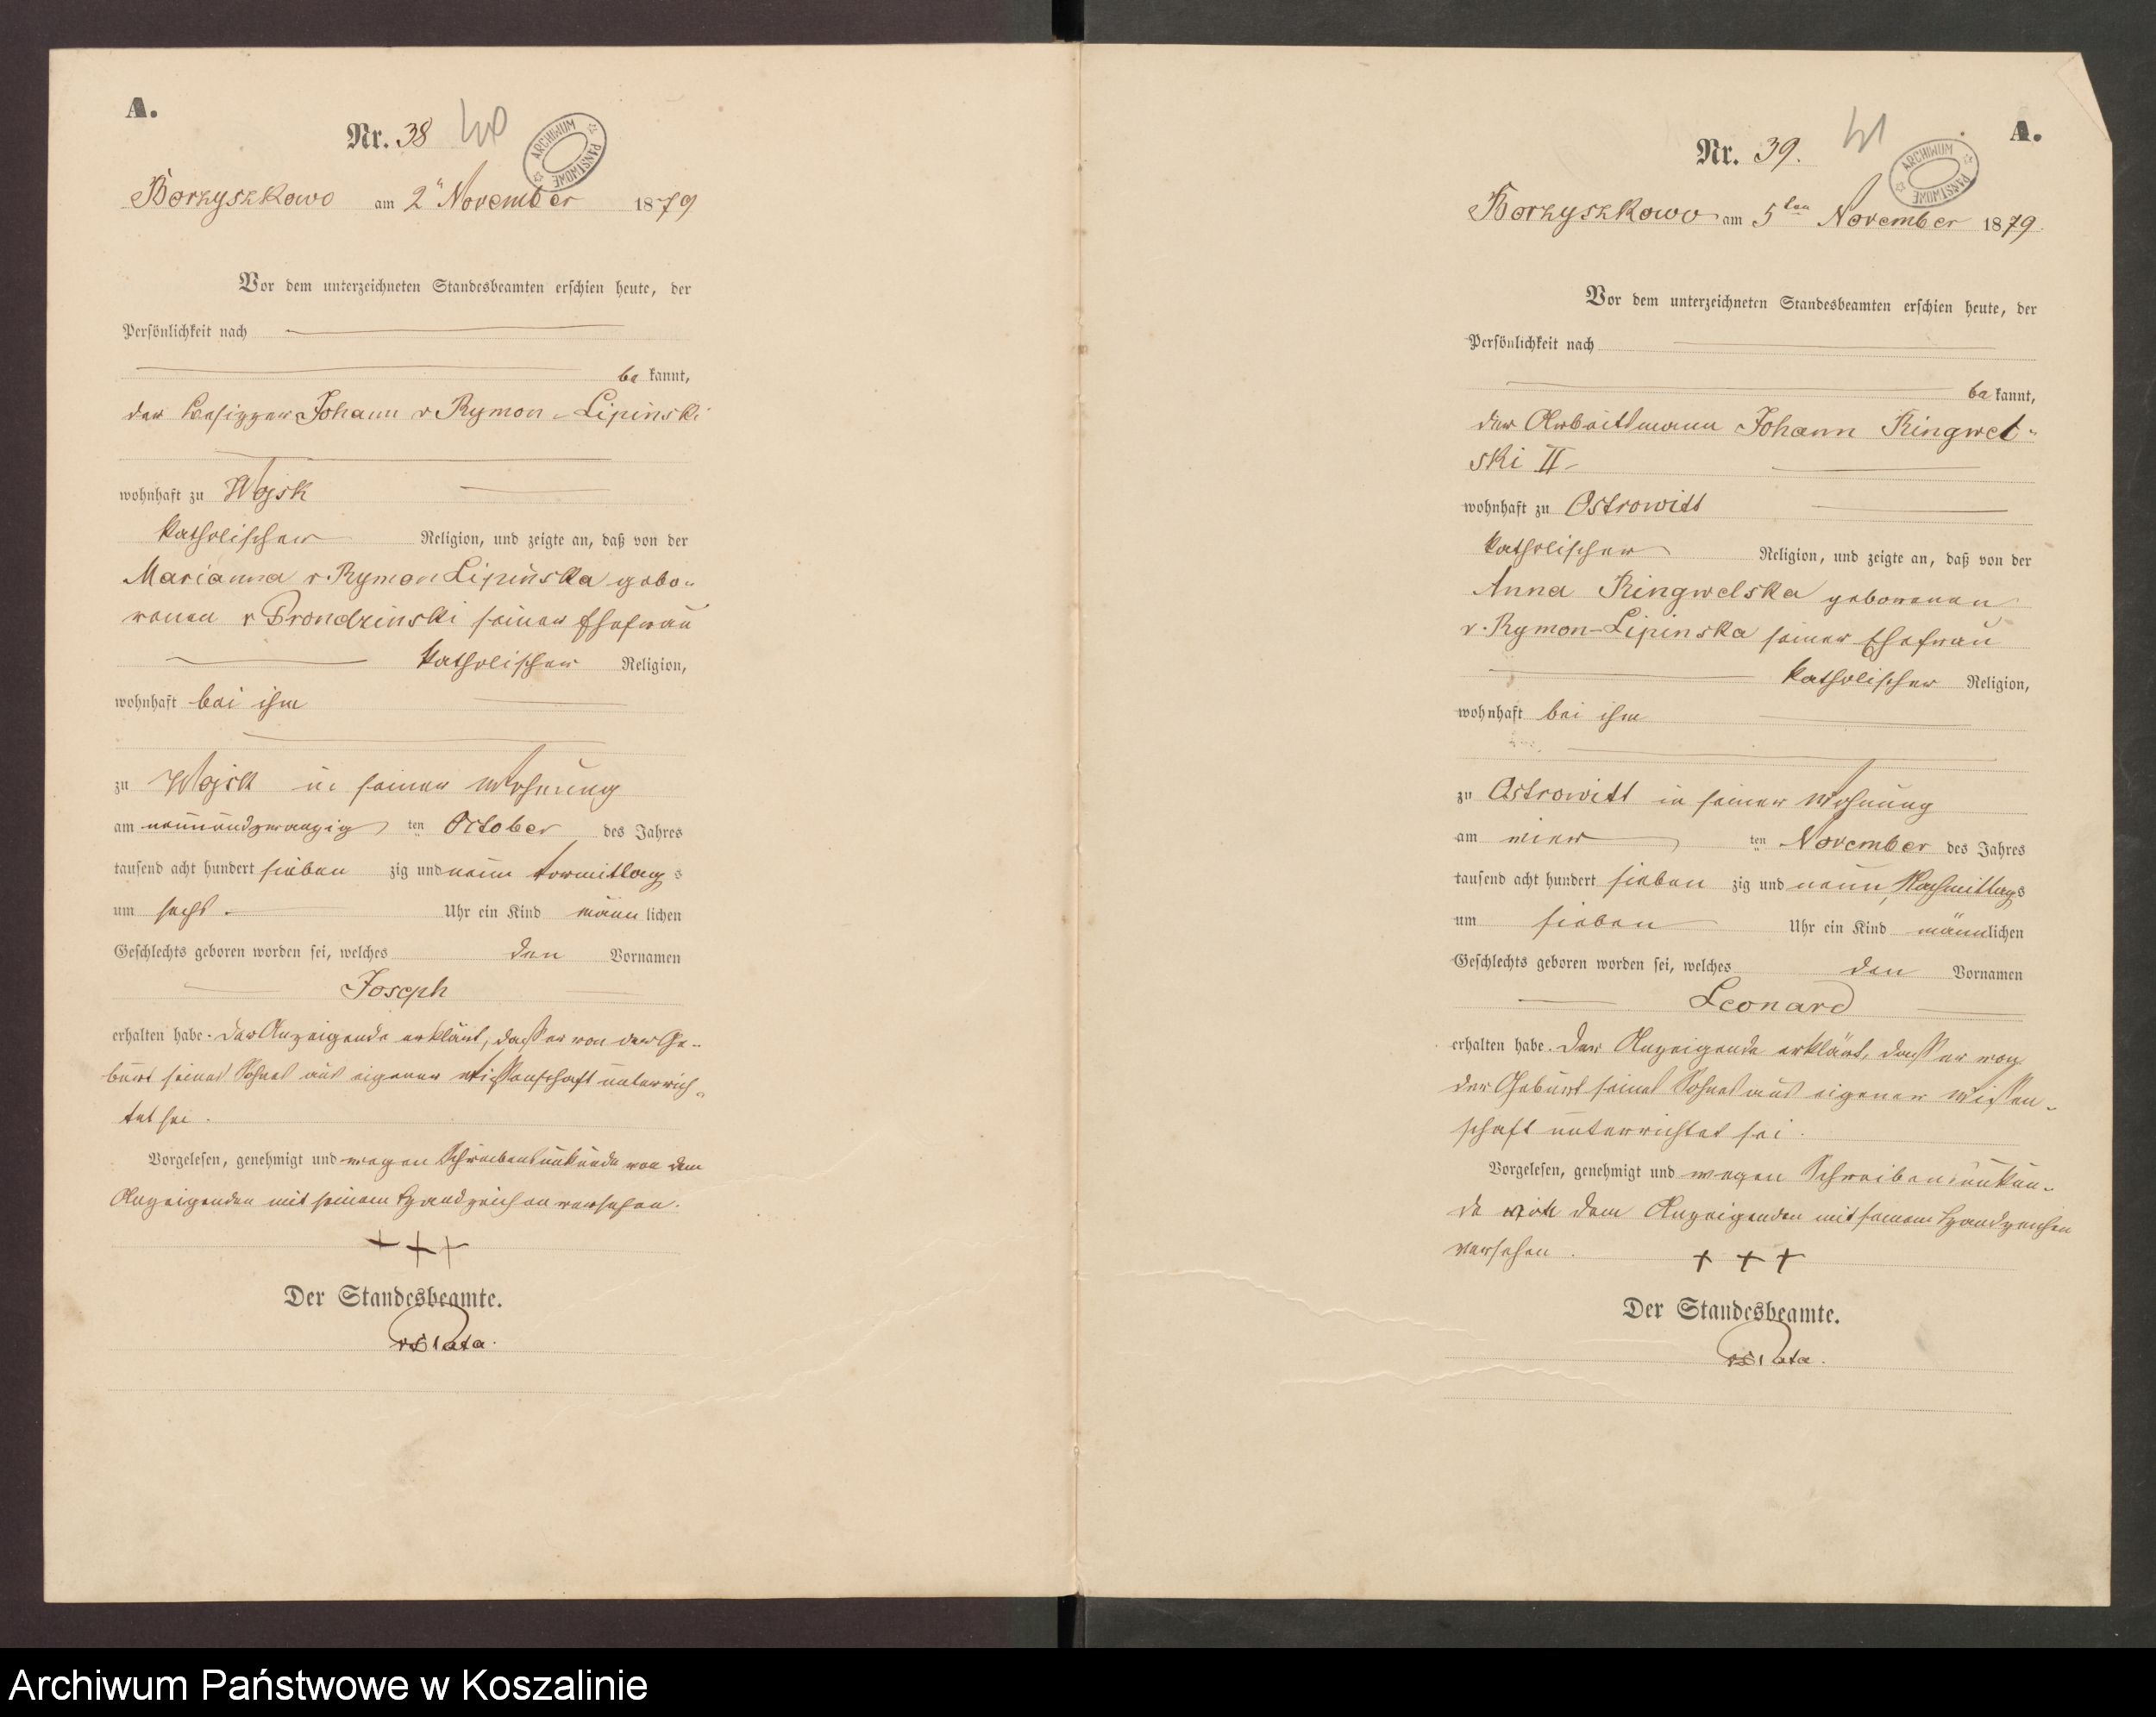 A.
Nr. 38
40
ARCHIWUM PAŃSTWOWE
Borzyszkowo am 2" November 1879
Vor dem unterzeichneten Standesbeamten erschien heute, der
Persönlichkeit nach
be kannt,
der Besitzer Johann v Rymon-Lipinski
wohnhaft zu Wojsk
katholischer Religion, und zeigte an, daß von der
Marianna v. Rymon Lipinska gebo-
renen v Prondzinski seiner Ehefrau
katholischer Religion,
wohnhaft bei ihm
zu Wojsk in seiner Wohnung
am neunundzwanzig ten October des Jahres
tausend acht hundert sieben zig und neun Vormittag s
um sechs Uhr ein Kind männ lichen
Geschlechts geboren worden sei, welches den Vornamen
Joseph
erhalten habe. Der Anzeigende erklärt, daß er von der Ge-
burt seines Sohnes aus eigener Wissenschaft unterrich-
tet sei.
Vorgelesen, genehmigt und wegen Schreibensunkunde von dem
Anzeigenden mit seinem Handzeichen versehen.
+++
Der Standesbeamte.
A.
Nr. 39.
41
ARCHIWUM PAŃSTWOWE
Borzyszkowo am 5ten November 1879.
Vor dem unterzeichneten Standesbeamten erschien heute, der
Persönlichkeit nach
be kannt,
der Arbeitsmann Johann Ringwel-
ski II
wohnhaft zu Ostrowitt
katholischer Religion, und zeigte an, daß von der
Anna Ringwelska geborenen
v. Rymon-Lipinska seiner Ehefrau
katholischer Religion,
wohnhaft bei ihm
zu Ostrowitt in seiner Wohnung
am vier ten November des Jahres
tausend acht hundert sieben zig und neun, Nachmittags
um sieben Uhr ein Kind männlichen
Geschlechts geboren worden sei, welches den Vornamen
Leonard
erhalten habe. Der Anzeigende erklärt, daß er von
der Geburt seines Sohnes aus eigener Wissen-
schaft unterrichtet sei.
Vorgelesen, genehmigt und wegen Schreibensunkun-
de von dem Anzeigenden mit seinem Handzeichen
versehen. + + +
Der Standesbeamte.
Archiwum Państwowe w Koszalinie